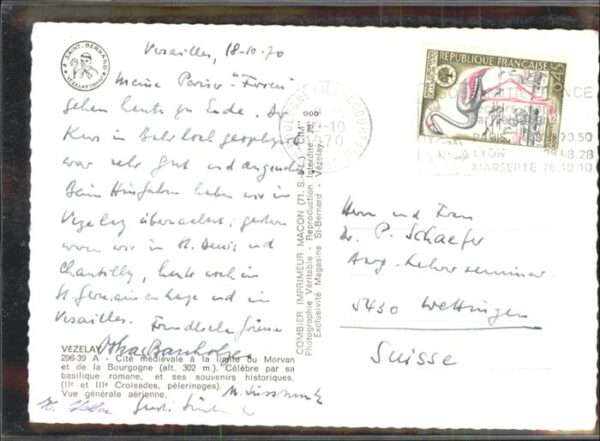 Versailles, 18-10-70
Meine Pariser "Ferien"
gehen heute zu Ende. Der
Kurs in
war sehr gut und angenehm
Beim Hinfahren haben wir in
Vezelay übernachtet; gestern
waren wir in St. Denis und
Chantilly, heute noch in
St Germain en Laye und in
Versailles. Freundliche Grüsse
VEZELAY
296-39 A - Cité médiévale à la limite du Morvan
et de la Bourgogne (alt. 302 m.). Célèbre par sa
basilique romane, et ses souvenirs historiques,
(IIe et IIIe Croisades, pèlerinages).
Vue générale aérienne.
COMBIER IMPRIMEUR MACON (71. S.-&-L.) "CIM"
Photographie Véritable - Reproduction Interdite
Exclusivité Magasins St-Bernard - Vézelay
RÉPUBLIQUE FRANÇAISE
0,45
LYON
MARSEILLE 26.10.10
Herrn und Frau
Dr. P. Schaefer
Arg. Lehrerseminar
5430 Wettingen
Suisse